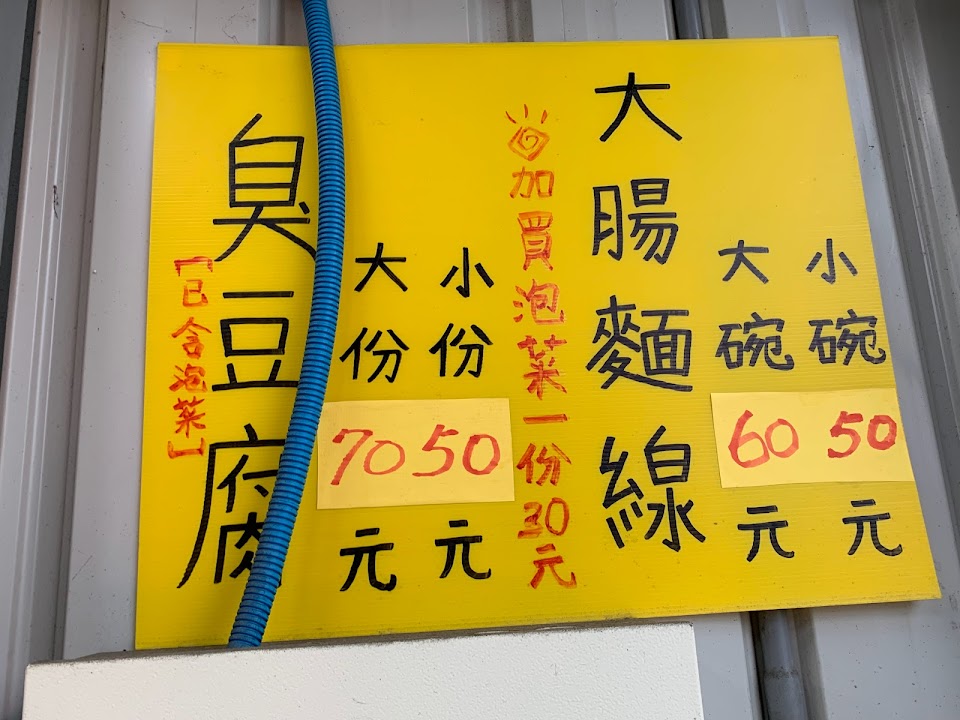 大腸麵線
小碗50元
大碗60元
加買泡菜一份30元
臭豆腐
小份50元
大份70元
「已含泡菜」